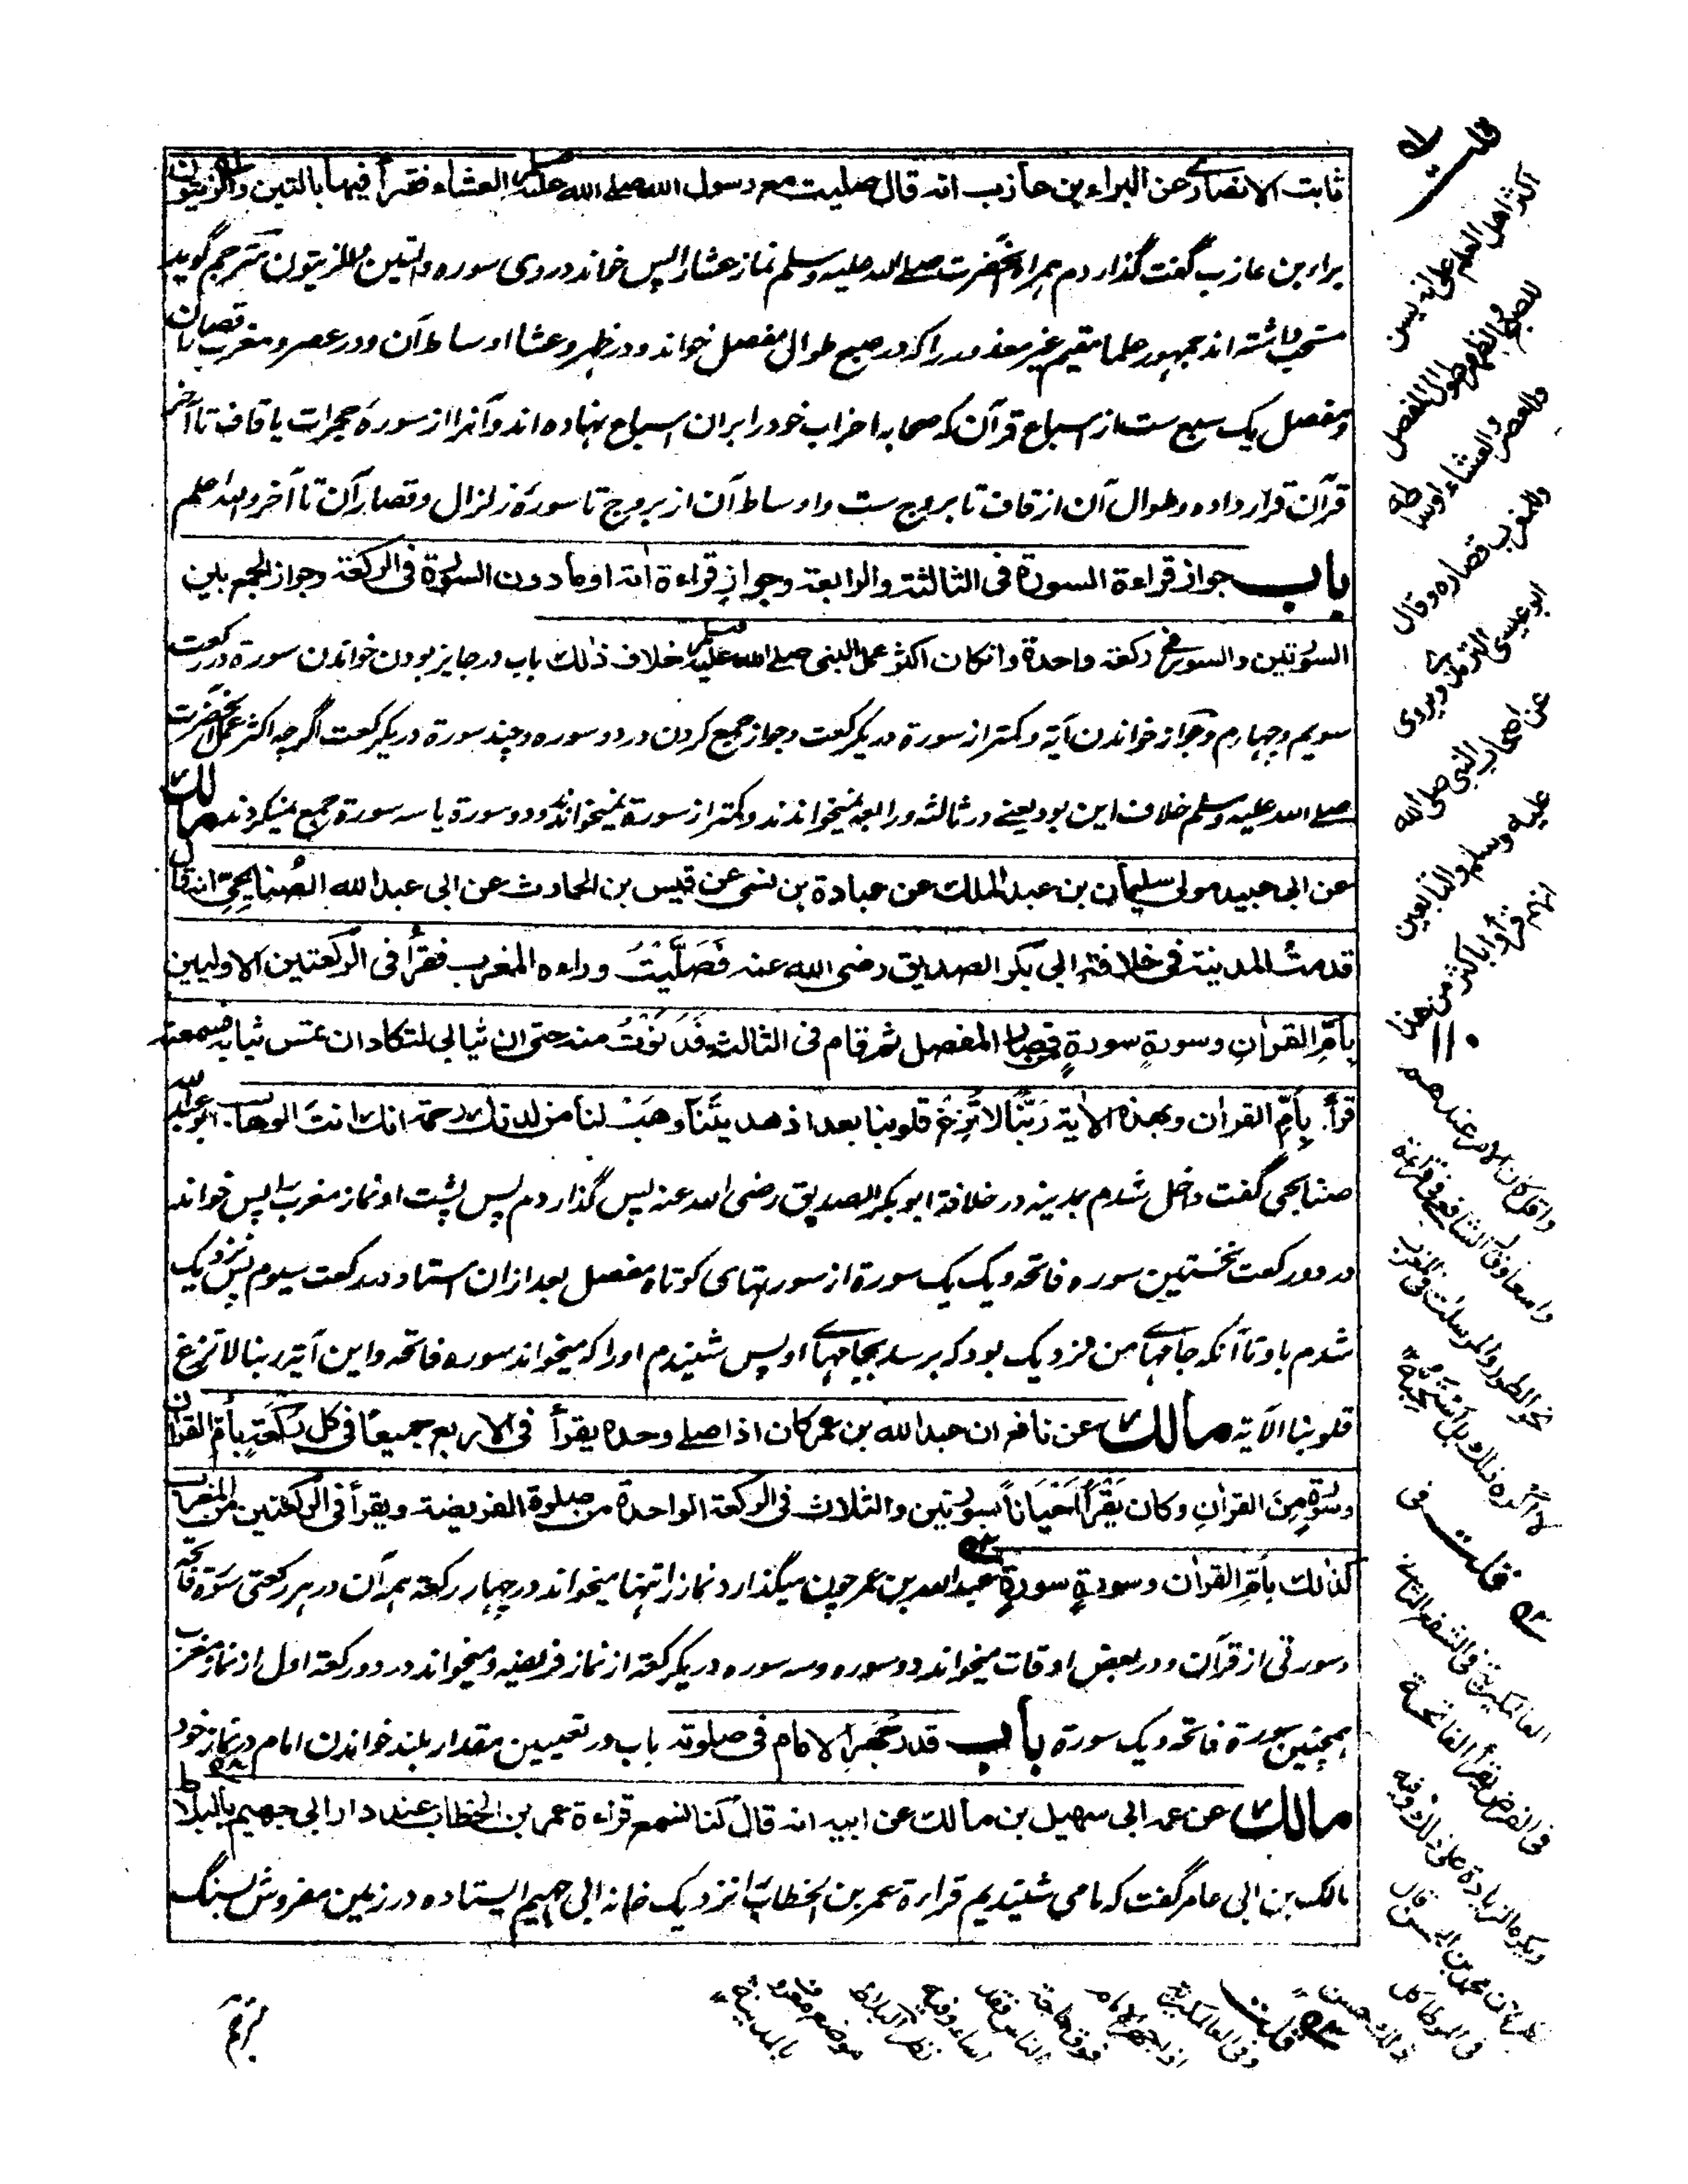 ثابت الانصاري عن البراء بن عازب انه قال صليت مع رسول الله صلے الله عليه وسلم العشاء فقرأ فيها بالتين والزيتون
براء بن عازب گفت گذاردم همراه آنحضرت صلے الله عليه وسلم نماز عشا را پس خواند دروی سوره والتين والزيتون مترجم گويد
مستحب داشته اند جمهور علما مقيم غير معذور را که در صبح طوال مفصل خواند و در ظهر و عشا اوساط آن و در عصر و مغرب قصار آن
و مفصل يک سبع ست از اسباع قرآن که صحابه احزاب خود را بران اسباع نهاده اند و آنرا از سورهٔ حجرات يا قاف تا آخر
قرآن قرار داده و طوال آن از قاف تا بروج ست و اوساط آن از بروج تا سورهٔ زلزال و قصار آن تا آخر والله اعلم
باب جواز قراءة السورة فى الثالثة والرابعة وجواز قراءة اٰية او ما دون السورة فى الركعة وجواز الجمع بين
السورتين والسور فى ركعة واحدة وان كان اكثر عمل النبى صلے الله عليه وسلم خلاف ذلك باب در جايز بودن خواندن سورة در رکعت
سويم و چهارم و جواز خواندن آية و کمتر از سورة در يک رکعت و جواز جمع کردن در دو سوره و چند سورة در يک رکعت اگرچه اکثر عمل آنحضرت
صلے الله عليه وسلم خلاف اين بود يعنے در ثالثه و رابعه نميخواندند و کمتر از سورة نميخواندند و دو سورة يا سه سورة جمع نميکردند مالك
عن ابى عبيد مولى سليمان بن عبد الملك عن عبادة بن نسى عن قيس بن الحارث عن ابى عبد الله الصُنابحيّ انه قال
قدمت المدينة فى خلافة ابى بكر الصديق رضى الله عنه فَصَلَّيْتُ وراءه المغرب فقرأ فى الركعتين الاوليين
بأمّ القراٰن وسورةٍ سورةٍ من قصار المفصل ثم قام فى الثالثة فَدَنَوْتُ منه حتى ان ثيابى لتكاد ان تمس ثيابه فسمعته
قرأ بأمّ القراٰن وبهذه الاٰية رَبَّنَا لا تُزِغْ قلوبنا بعد اذ هديتَنَا وهَبْ لنا من لدنك رحمة انك انتَ الوهاب ابو عبد الله
صنابحی گفت داخل شدم بمدينه در خلافة ابو بکر الصديق رضی الله عنه پس گذاردم پس پشت او نماز مغرب را پس خواند
در دو رکعت نخستين سوره فاتحه و يک يک سورة از سورتهای کوتاه مفصل بعد ازان استاد در رکعت سيوم پس نزديک
شدم باو تا آنکه جامهاے من نزديک بود که برسد بجامهاے او پس شنيدم او را که ميخواند سوره فاتحه و اين آية ربنا لا تزغ
قلوبنا الآية مالك عن نافع ان عبد الله بن عمر كان اذا صلے وحده يقرأ فى الاربع جميعًا فى كل ركعة بأم القراٰن
وسورةٍ مِنَ القراٰنِ وكان يَقْرَأُ اَحْيَانًا بسورتين والثلاث فى الركعة الواحدة من صلوة الفريضة ويقرأ فى الركعتين من المغرب
كذٰلك بأم القراٰن وسورةٍ سورةٍ عبد الله بن عمر چون ميگذارد نماز را تنها ميخواند در چهار رکعة همه آن در هر رکعتی سورة فاتحه
و سورتی از قرآن و در بعض اوقات ميخواند دو سوره و سه سوره در يک رکعة از نماز فريضه و ميخواند در دو رکعة اول از نماز مغرب
همچنين سورة فاتحه و يک سورة باب قدر جَهْرِ الامام فى صلوته باب در تعيين مقدار بلند خواندن امام در نماز خود
مالك عن عمه ابى سهيل بن مالك عن ابيه انه قال كنا نسمع قراءة عمر بن الخطاب عند دار ابى جهيم بالبلاط
مالک بن ابی عامر گفت که ما می شنيديم قراءة عمر بن الخطاب را نزديک خانه ابی جهيم ايستاده در زمين مفروش بسنگ
قلت
اكثر اهل العلم على انه يسن
للصبح والظهر طوال المفصل
والعصر والعشاء اوساطه
والمغرب قصاره وقال
ابو عيسى الترمذى ويروى
عن اصحاب النبى صلى الله
عليه وسلم والتابعين
انهم قرأوا باكثر من هذا
واقل كان الامر عندهم
واسعا وقال الشافعى فى قراءة
نحو الطور والمرسلات فى المغرب
لا اكره ذلك بل استحبه
قلت فى
العالمكيرية فى الشفع الثانى
فى الفرض يقرأ الفاتحة
ويكره الزيادة على ذلك وفيه
محمد بن الحسن قال
فى الموطا
ذلك حسن
قلت
وفى العالمكيرية
اذا جهر الامام
فوق حاجة
الناس فقد
اساء وفيه
البلاط
موضع معروف
بالمدينة